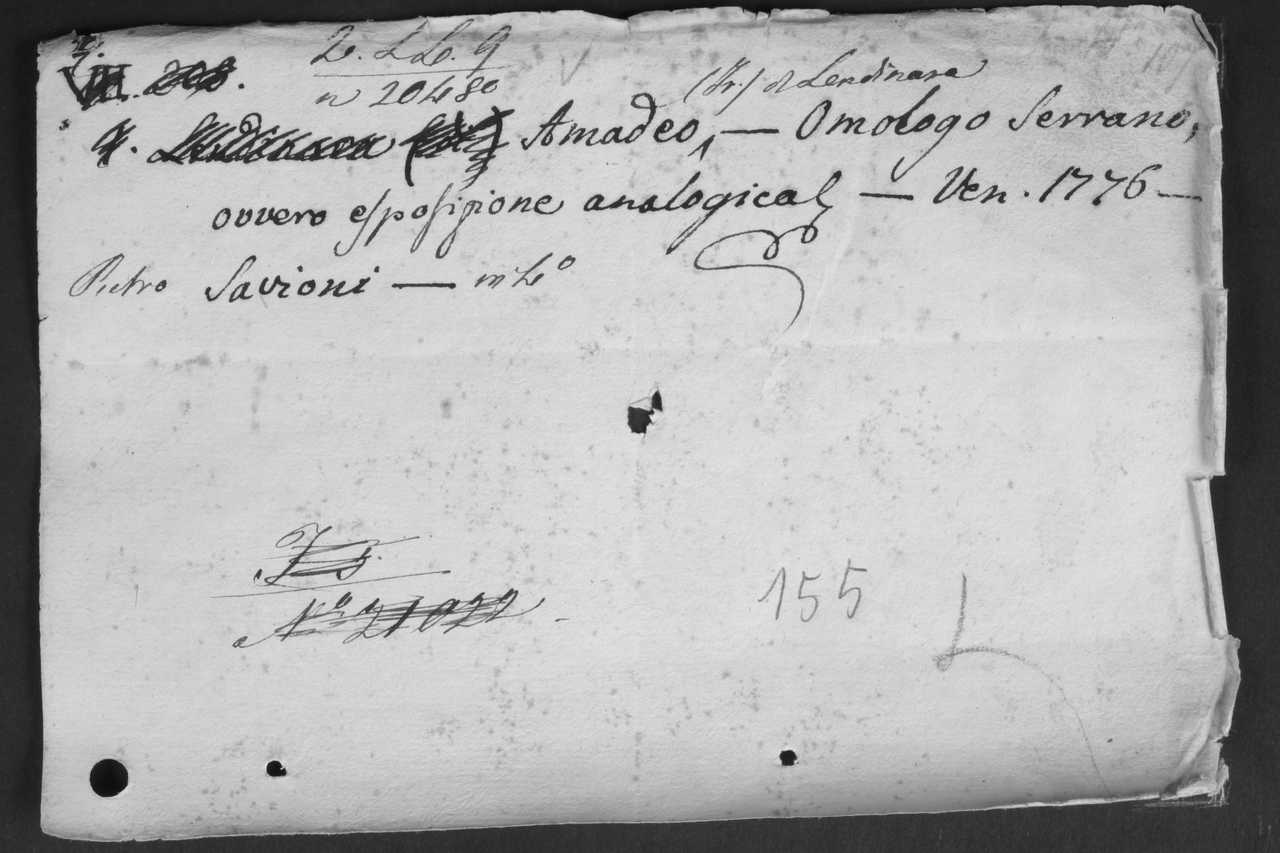 n 20480
(Fr.) di Lendinara
Amadeo, — Omologo Serrano,
ovvero esposizione analogical — Ven. 1776 —
Pietro Savioni — in 4º
Nº 21022
155
L